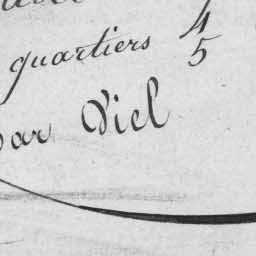 quartiers 4/5
par Viel